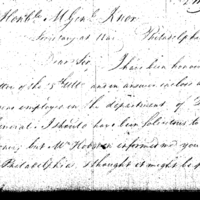 Honble. M. Genl. Knox
Secretary at War Philadelphia
Dear Sir I have been honor
of the 5th Ulto. and an answer
employed in the department of
General; I should have been
but Mr. Hodgdon informed me you
Philadelphia, I thought it might be